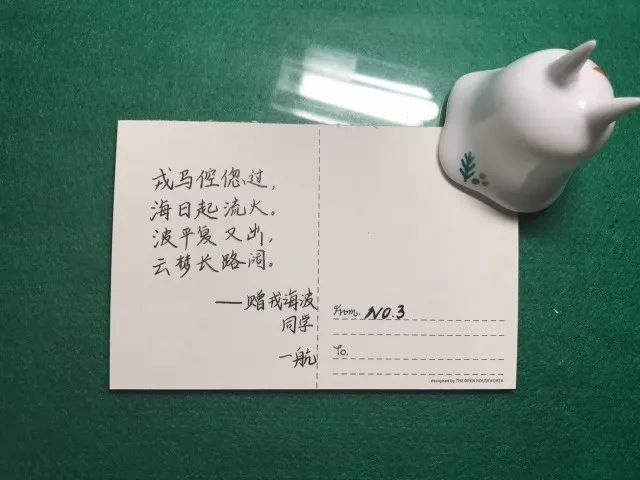 戎马倥偬过，
海日起流火。
波平复又出，
云梦长路阔。
——赠戎海波
同学
一航
From. NO.3
To.
designed by THE OPEN HOUSE KOREA